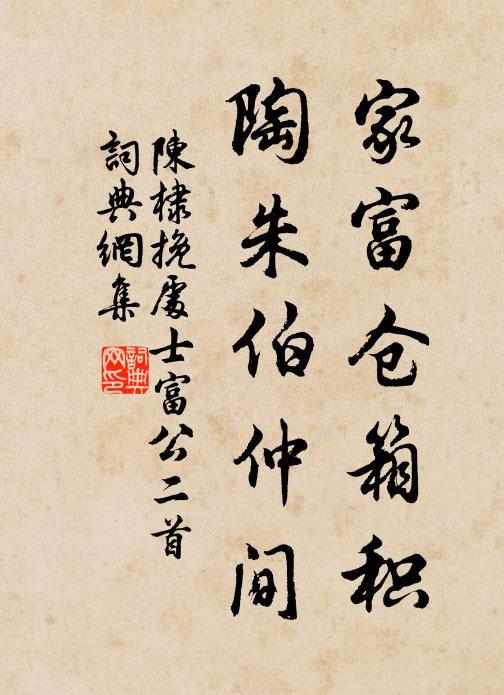 家富仓箱积
陶朱伯仲间
陳棣挽處士富公二首
詞典網集
詞典网印